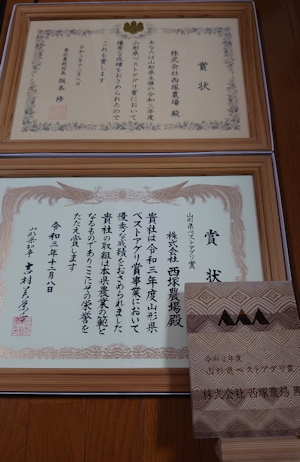 賞状
株式会社西塚農場 殿
あなたは山形県主催の令和三年度
山形県ベストアグリ賞において
優秀な成績をおさめられたので
これを賞します
令和三年十二月八日
東北農政局長 坂本 修
山形県ベストアグリ賞
賞状
株式会社 西塚農場 殿
貴社は令和三年度山形県
ベストアグリ賞事業において
優秀な成績をおさめられました
貴社の取組は本県農業の範と
なるものでありここにその栄誉を
たたえ賞します
令和三年十二月八日
山形県知事 吉村
令和3年度
山形県ベストアグリ賞
株式会社 西塚農場 殿